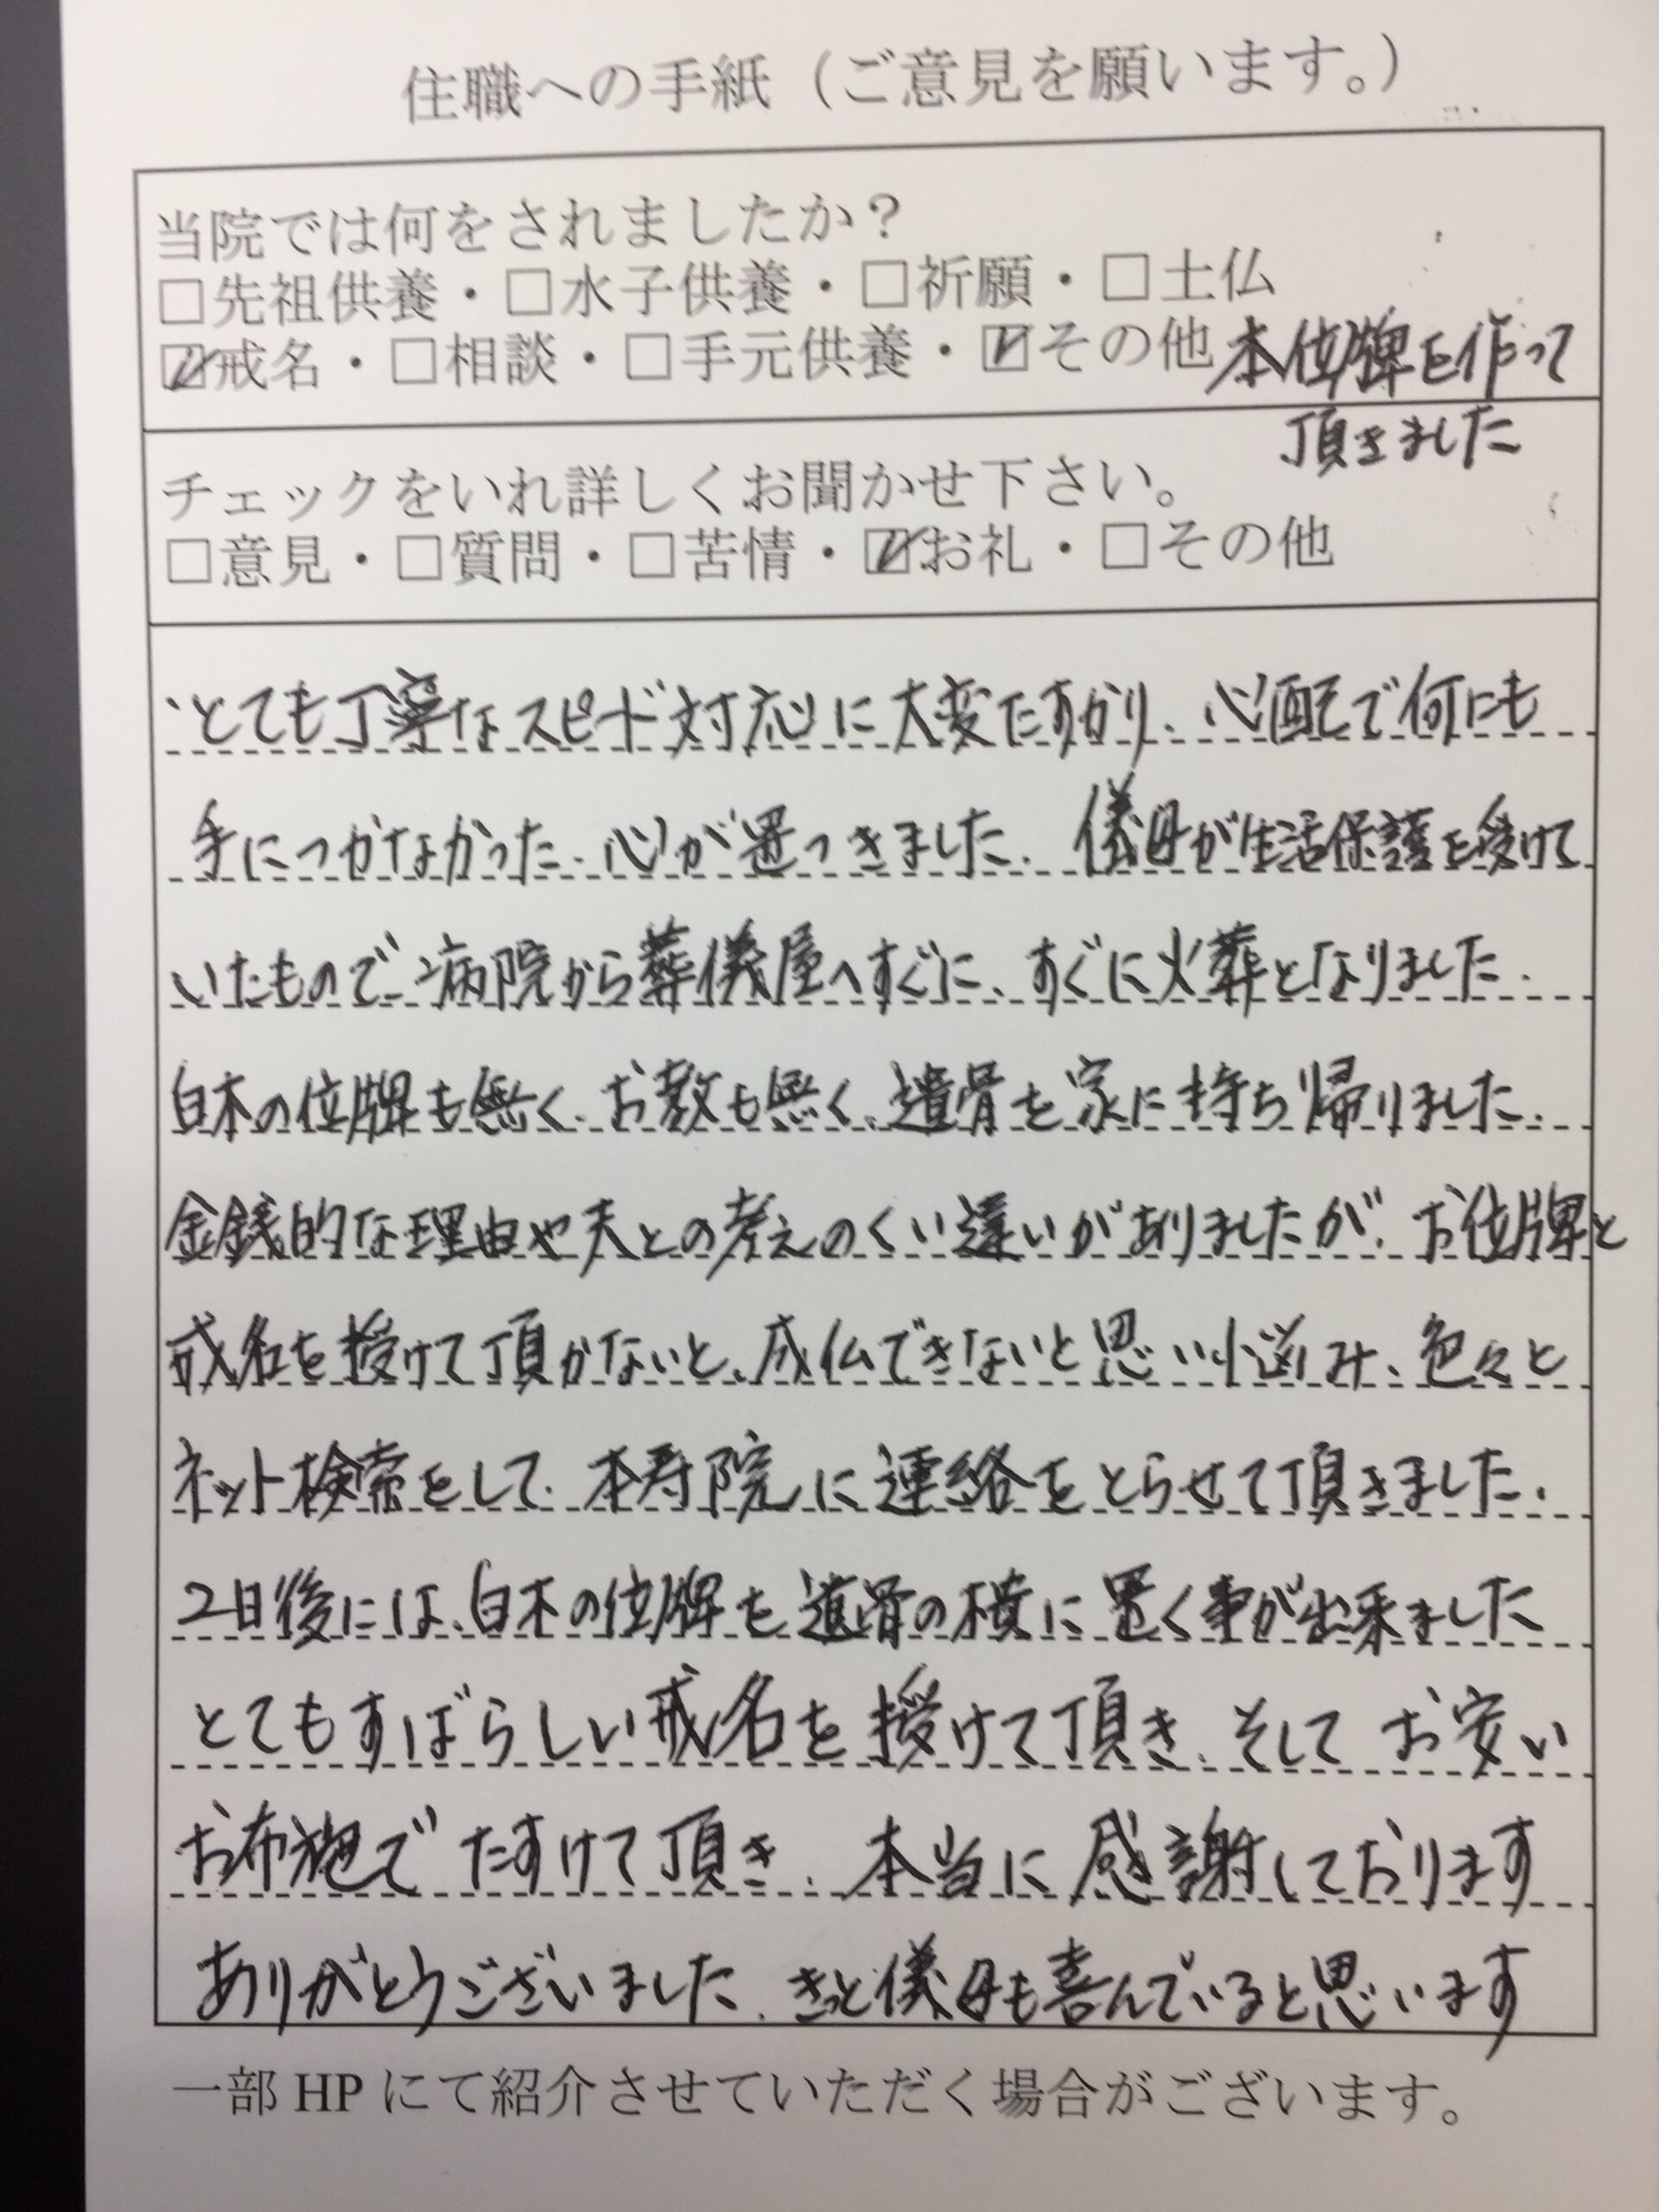 住職への手紙（ご意見を願います。）
当院では何をされましたか？
□先祖供養・□水子供養・□祈願・□土仏
☑戒名・□相談・□手元供養・☑その他 本位牌を作って
頂きました
チェックをいれ詳しくお聞かせ下さい。
□意見・□質問・□苦情・☑お礼・□その他
、とても丁寧なスピード対応に大変たすかり、心配で何にも
手につかなかった、心が置つきました。儀母が生活保護を受けて
いたもので、病院から葬儀屋へすぐに、すぐに火葬となりました。
白木の位牌も無く、お教も無く、遺骨を家に持ち帰りました。
金銭的な理由や夫との考えのくい違いがありましたが、お位牌と
戒名を授けて頂かないと、成仏できないと思い悩み、色々と
ネット検索をして、本寿院に連絡をとらせて頂きました。
2日後には、白木の位牌を遺骨の横に置く事が出来ました
とてもすばらしい戒名を授けて頂き、そしてお安い
お布施でたすけて頂き、本当に感謝しております
ありがとうございました。きっと儀母も喜んでいると思います
一部HPにて紹介させていただく場合がございます。